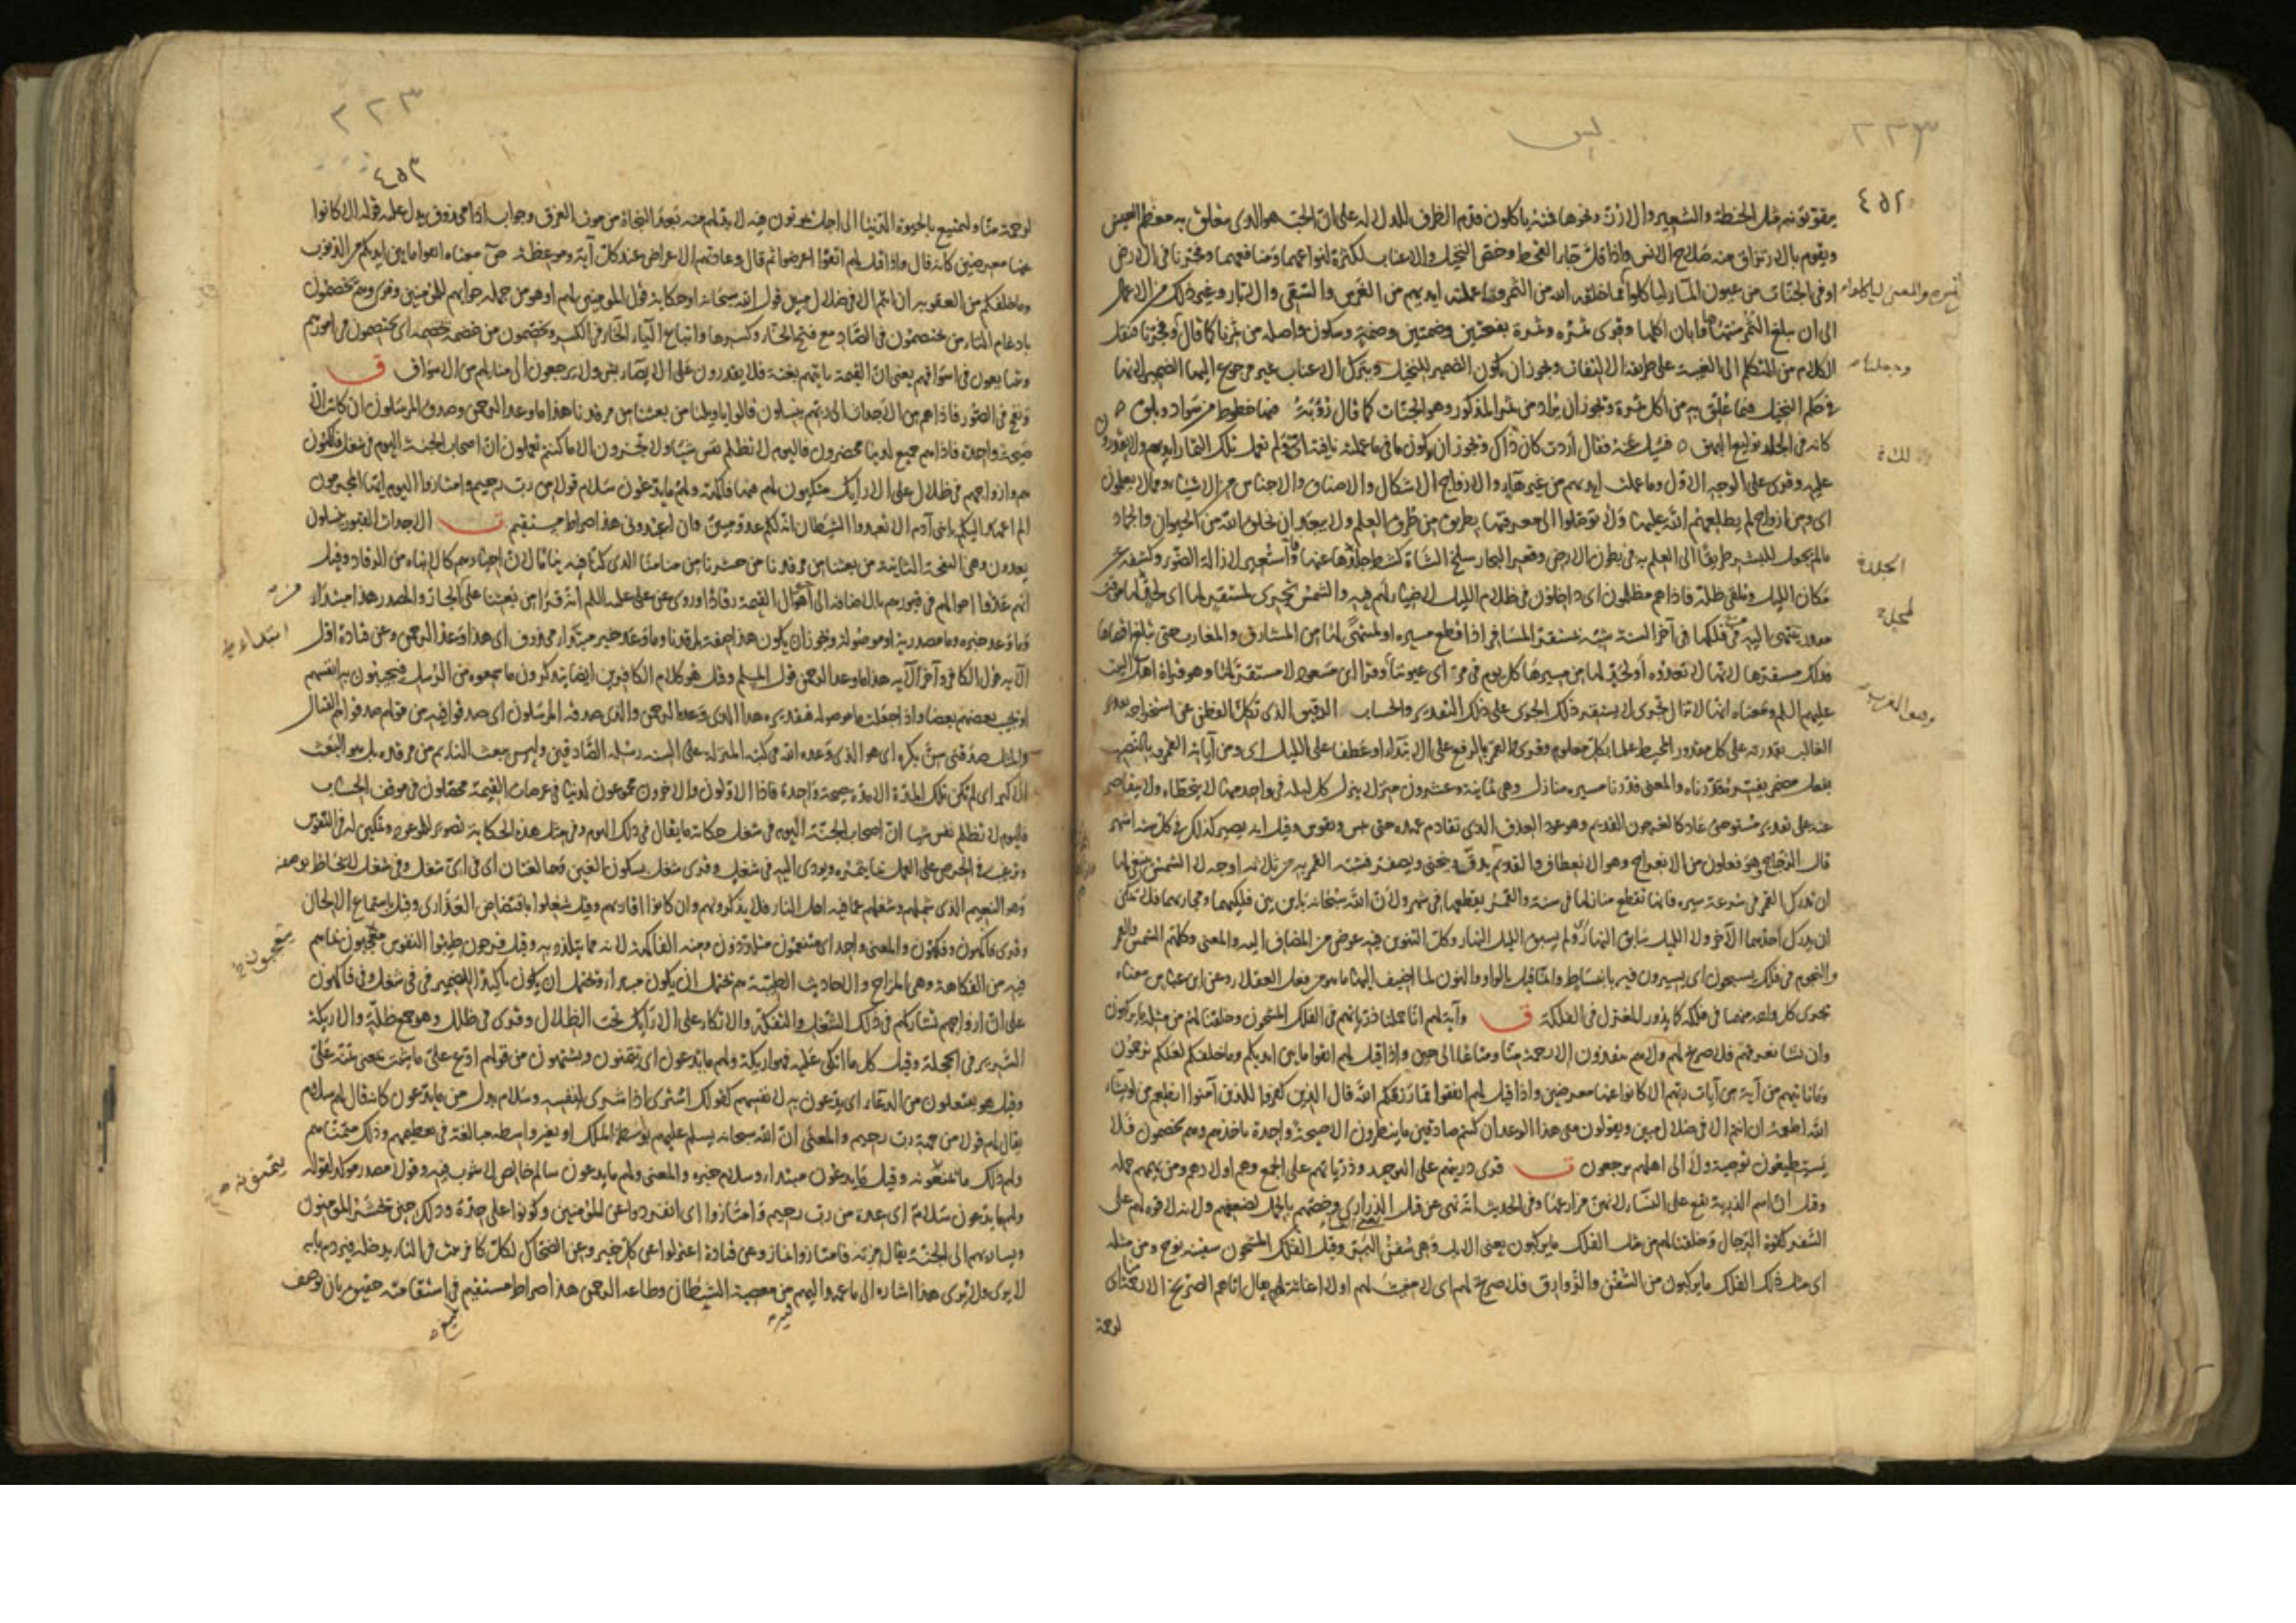 يس
٤٥٢
يتقوتونه مثل الحنطة والشعير والارز ونحوها فمنه ياكلون قدم الظرف للدلالة على ان الحب هو الذي يتعلق به معظم العيش
ويقوم بالارتزاق منه صلاح الانس واذا قل جاء القحط وخص النخيل والاعناب لكثرة انواعهما ومنافعهما وفجرنا في الارض
او في الجنات من عيون الماء لياكلوا مما خلقه الله من الثمر ومما عملته ايديهم من الغرس والسقي والآبار وغير ذلك من الاعمال
الى ان بلغ الثمر منتهاه وابان اكلها وقرئ ثمره وثمره بفتحتين وضمتين وضمة وسكون واصله من ثمرنا كما قال وفجرنا فنقل
الكلام من التكلم الى الغيبة على طريقة الالتفات ويجوز ان يكون الضمير للنخيل ويترك الاعناب غير مرجوع اليها الضمير لانها
في حكم النخيل فيما علق به من اكل ثمره ويجوز ان يراد من ثمر المذكور وهو الجنات كما قال رؤبة فيها خطوط من سواد وبلق
كانه في الجلد توليع البهق فسئل عنه فقال اردت كان ذاك ويجوز ان يكون ما في ما عملته نافية اي ولم تعمل تلك الثمار ايديهم ولا يقدرون
عليه وقرئ على الوجه الاول وما عملت ايديهم من غير هاء والازواج الاشكال والاصناف والاجناس من الاشياء ومما لا يعلمون
اي ومن ازواج لم يطلعهم الله عليها ولا توصلوا الى معرفتها بطريق من طرق العلم ولا يبعد ان يخلق الله من الحيوان والجماد
ما لم يجعل للبشر طريقا الى العلم به في بطون الارض وقعر البحار سلخ الشاة كشط جلدها عنها فاستعير لازالة الضوء وكشفه عن
مكان الليل وملقى ظله فاذا هم مظلمون اي داخلون في ظلام الليل لا ضياء لهم فيه والشمس تجري لمستقر لها اي لحد لها موقت
مقدر تنتهي اليه في فلكها في آخر السنة شبه بمستقر المسافر اذا قطع مسيره او لمنتهى لها من المشارق والمغارب حتى تبلغ اقصاها
فذلك مستقرها لانها لا تعدوه او لحد لها من مسيرها كل يوم في مرأى عيوننا وقرأ ابن مسعود لا مستقر لها وهو قراءة اهل البيت
عليهم السلم ومعناه انها لا تزال تجري لا يستقر ذلك الجري على ذلك التقدير والحساب الدقيق الذي تكل الفطن عن استخراجه تقدير
الغالب بقدرته على كل مقدور المحيط علما بكل معلوم وقرئ والقمر بالرفع على الابتداء او عطفا على الليل اي ومن آياته القمر وبالنصب
بفعل مضمر يفسره قدرناه والمعنى قدرنا مسيره منازل وهي ثمانية وعشرون منزلا ينزل كل ليلة في واحد منها لا يتخطاه ولا يتقاصر
عنه على تقدير مستو حتى عاد كالعرجون القديم وهو عود العذق الذي تقادم عهده حتى يبس وتقوس وقيل انه يصير كذلك في كل ستة اشهر
قال الزجاج هو فعلون من الانعراج وهو الانعطاف والقديم يدق وينحني ويصفر فشبه القمر به من ثلاثة اوجه لا الشمس ينبغي لها
ان تدرك القمر في سرعة سيره فانها تقطع منازلها في سنة والقمر يقطعها في شهر ولان الله سبحانه باين بين فلكيهما ومجاريهما فلا يمكن
ان يدرك احدهما الآخر ولا الليل سابق النهار ولم يسبق الليل النهار وكل التنوين فيه عوض من المضاف اليه والمعنى وكلهم الشمس والقمر
والنجوم في فلك يسبحون اي يسيرون فيه بانبساط وانما قيل بالواو والنون لما اضيف اليها ما هو من فعل العقلاء وعن ابن عباس معناه
يجري كل واحد منها في فلكه كما يدور المغزل في الفلكة ق وآية لهم انا حملنا ذرياتهم في الفلك المشحون وخلقنا لهم من مثله ما يركبون
وان نشا نغرقهم فلا صريخ لهم ولا هم ينقذون الا رحمة منا ومتاعا الى حين واذا قيل لهم اتقوا ما بين ايديكم وما خلفكم لعلكم ترحمون
وما تاتيهم من آية من آيات ربهم الا كانوا عنها معرضين واذا قيل لهم انفقوا مما رزقكم الله قال الذين كفروا للذين آمنوا انطعم من لو يشاء
الله اطعمه ان انتم الا في ضلال مبين ويقولون متى هذا الوعد ان كنتم صادقين ما ينظرون الا صيحة واحدة تاخذهم وهم يخصمون فلا
يستطيعون توصية ولا الى اهلهم يرجعون ت قرئ ذريتهم على التوحيد وذرياتهم على الجمع وهم اولادهم ومن يهمهم حمله
وقيل ان اسم الذرية يقع على النساء لانهن مزارعها وفي الحديث انه نهى عن قتل الذراري وخصهم بالحمل لضعفهم ولانه لا قوة لهم على
السفر كقوة الرجال وخلقنا لهم من مثل الفلك ما يركبون يعني الابل وهي سفن البر وقيل الفلك المشحون سفينة نوح ومن مثله
اي مثل ذلك الفلك ما يركبون من السفن والزوارق فلا صريخ لهم اي لا مغيث لهم او لا اغاثة لهم يقال اتاهم الصريخ الا لرحمة اي
لرحمة
٢٢٣
٤٥٣
لرحمة منا ولتمتيع بالحيوة الدنيا الى اجل يموتون فيه لا بد لهم منه بعد النجاة من موت الغرق وجواب اذا محذوف يدل عليه قوله الا كانوا
عنها معرضين كانه قال واذا قيل لهم اتقوا اعرضوا ثم قال وعادتهم الاعراض عند كل آية وموعظة ص معناه اتقوا ما بين ايديكم من الذنوب
وما خلفكم من العقوبة ان انتم الا في ضلال مبين قول الله سبحانه او حكاية قول المؤمنين لهم او هو من جملة جوابهم للمؤمنين وقرئ وهم يخصمون
بادغام التاء من يختصمون في الصاد مع فتح الخاء وكسرها واتباع الياء الخاء في الكسر ويخصمون من خصمه يخصمه اي يختصمون في امورهم
وتبايعون في اسواقهم يعني ان القيمة تاتيهم بغتة فلا يقدرون على الايصاء بشئ ولا يرجعون الى منازلهم من الاسواق ق
ونفخ في الصور فاذا هم من الاجداث الى ربهم ينسلون قالوا يا ويلنا من بعثنا من مرقدنا هذا ما وعد الرحمن وصدق المرسلون ان كانت الا
صيحة واحدة فاذا هم جميع لدينا محضرون فاليوم لا تظلم نفس شيئا ولا تجزون الا ما كنتم تعملون ان اصحاب الجنة اليوم في شغل فاكهون
هم وازواجهم في ظلال على الارائك متكئون لهم فيها فاكهة ولهم ما يدعون سلام قولا من رب رحيم وامتازوا اليوم ايها المجرمون
الم اعهد اليكم يا بني آدم الا تعبدوا الشيطان انه لكم عدو مبين وان اعبدوني هذا صراط مستقيم ت الاجداث القبور ينسلون
يعدون وهي النفخة الثانية من بعثنا من مرقدنا من حشرنا من منامنا الذي كنا فيه نياما لان احياءهم كالانتباه من الرقاد وقيل
انهم عدوا احوالهم في قبورهم بالاضافة الى اهوال القيمة رقادا وروي عن علي عليه السلم انه قرأ من بعثنا على الجار والمصدر هذا مبتداء
وما وعد خبره وما مصدرية او موصولة ويجوز ان يكون هذا صفة لمرقدنا وما وعد خبر مبتداء محذوف اي هذا وعد الرحمن وعن قتادة اول
الآية قول الكافر وآخر الآية هذا ما وعد الرحمن قول المسلم وقيل هو كلام الكافرين ايضا يتذكرون ما سمعوه من الرسل فيجيبون به انفسهم
او يجيب بعضهم بعضا واذا جعلت ما موصولة فتقديره هذا الذي وعده الرحمن والذي صدقه المرسلون اي صدقوا فيه من قولهم صدقوهم القتال
والمثل صدقني سن بكره اي هو الذي وعده الله في كتبه المنزلة على السنة رسله الصادقين وليس ببعث النائم من مرقده بل هو البعث
الاكبر اي لم تكن تلك المدة الا مدة صيحة واحدة فاذا الاولون والآخرون مجموعون لدينا في عرصات القيمة محصلون في موقف الحساب
فاليوم لا تظلم نفس شيئا ان اصحاب الجنة اليوم في شغل حكاية ما يقال في ذلك اليوم وفي مثل هذه الحكاية تصوير للموعود وتمكين له في النفوس
وترغيب في الحرص على العمل بما يثمره ويؤدي اليه في شغل وقرئ شغل بسكون الغين وهما لغتان اي في اي شغل وفي شغل لا يحاط بوصفه
وهو النعيم الذي شملهم وشغلهم عما فيه اهل النار فلا يذكرونهم وان كانوا اقاربهم وقيل شغلوا بافتضاض العذارى وقيل باستماع الالحان
وقرئ فاكهون وفكهون والمعنى واحد اي متنعمون متلذذون ومنه الفاكهة لانه مما يتلذذ به وقيل فرحون طيبوا النفوس متعجبون بما هم
فيه من الفكاهة وهي المزاح والاحاديث الطيبة هم يحتمل ان يكون مبتداء ويحتمل ان يكون تاكيدا للضمير في في شغل وفي فاكهون
على ان ازواجهم تشاركهم في ذلك الشغل والتفكه والاتكاء على الارائك تحت الظلال وقرئ في ظلل وهو جمع ظلة والاريكة
السرير في الحجلة وقيل كل ما اتكي عليه فهو اريكة ولهم ما يدعون اي يتمنون ويشتهون من قولهم ادع علي ما شئت بمعنى تمنه علي
وقيل هو يفتعلون من الدعاء اي يدعون به لانفسهم كقولك اشتوى اذا شوى لنفسه وسلام بدل من ما يدعون كانه قال لهم سلام
يقال لهم قولا من جهة رب رحيم والمعنى ان الله سبحانه يسلم عليهم بواسطة الملك او بغير واسطة مبالغة في تعظيمهم وذلك متمناهم
ولهم ذلك لا يمنعونه وقيل ما يدعون مبتداء وسلام خبره والمعنى ولهم ما يدعون سالم خالص لا شوب فيه وقولا مصدر مؤكد لقوله
ولهم ما يدعون سلام اي عدة من رب رحيم وامتازوا اي انفردوا عن المؤمنين وكونوا على حدة وذلك حين يحشر المؤمنون
ويسار بهم الى الجنة يقال مزته فامتاز وانماز وعن قتادة اعتزلوا عن كل خير وعن الضحاك لكل كافر بيت في النار يدخله فيردم بابه
لا يرى ولا يرى هذا اشارة الى ما عهد اليهم من معصية الشيطان وطاعة الرحمن هذا صراط مستقيم في استقامته حقيق بان يوصف